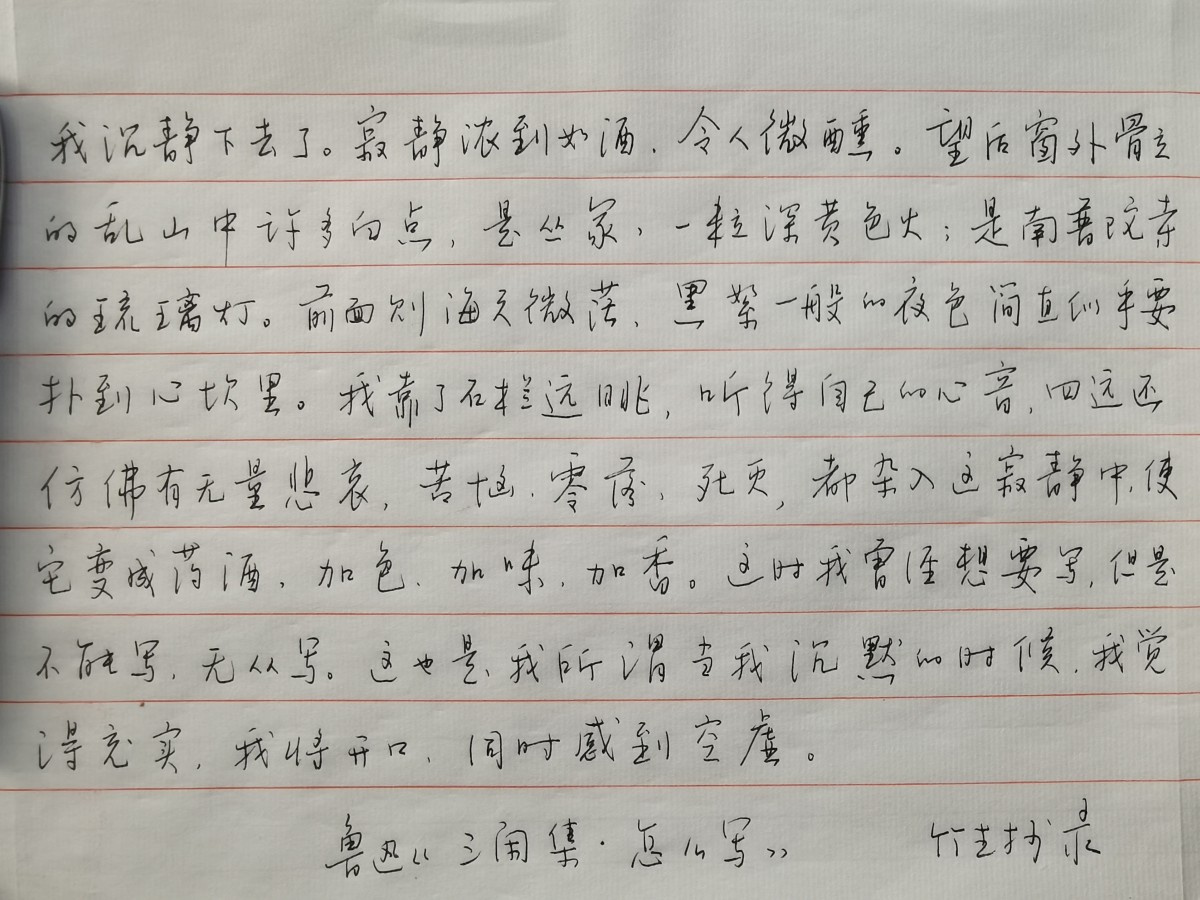 我沉静下去了。寂静浓到如酒，令人微醺。望后窗外骨立
的乱山中许多白点，是丛冢，一粒深黄色火；是南普陀寺
的琉璃灯。前面则海天微茫，黑絮一般的夜色简直似乎要
扑到心坎里。我靠了石栏远眺，听得自己的心音，四远还
仿佛有无量悲哀，苦恼，零落，死灭，都杂入这寂静中，使
它变成药酒，加色，加味，加香。这时我曾经想要写，但是
不能写，无从写。这也是我所谓当我沉默的时候，我觉
得充实，我将开口，同时感到空虚。
鲁迅《三闲集·怎么写》 竹生抄录